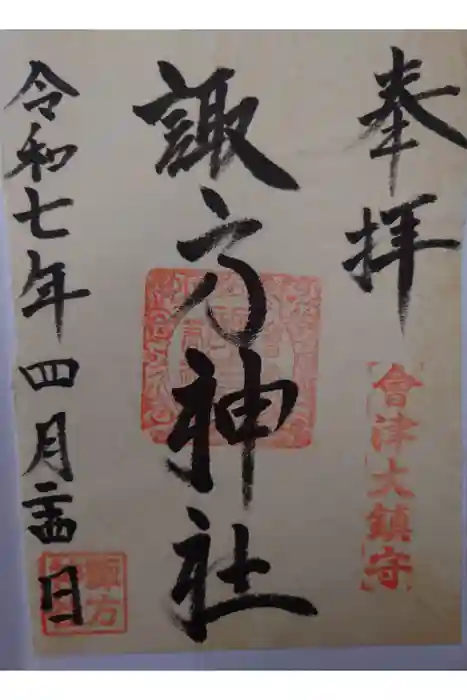 奉拝
會津大鎮守
諏方神社
令和七年四月二十四日
諏方